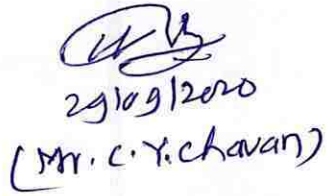 29/09/2020
(Mr. C. Y. Chavan)